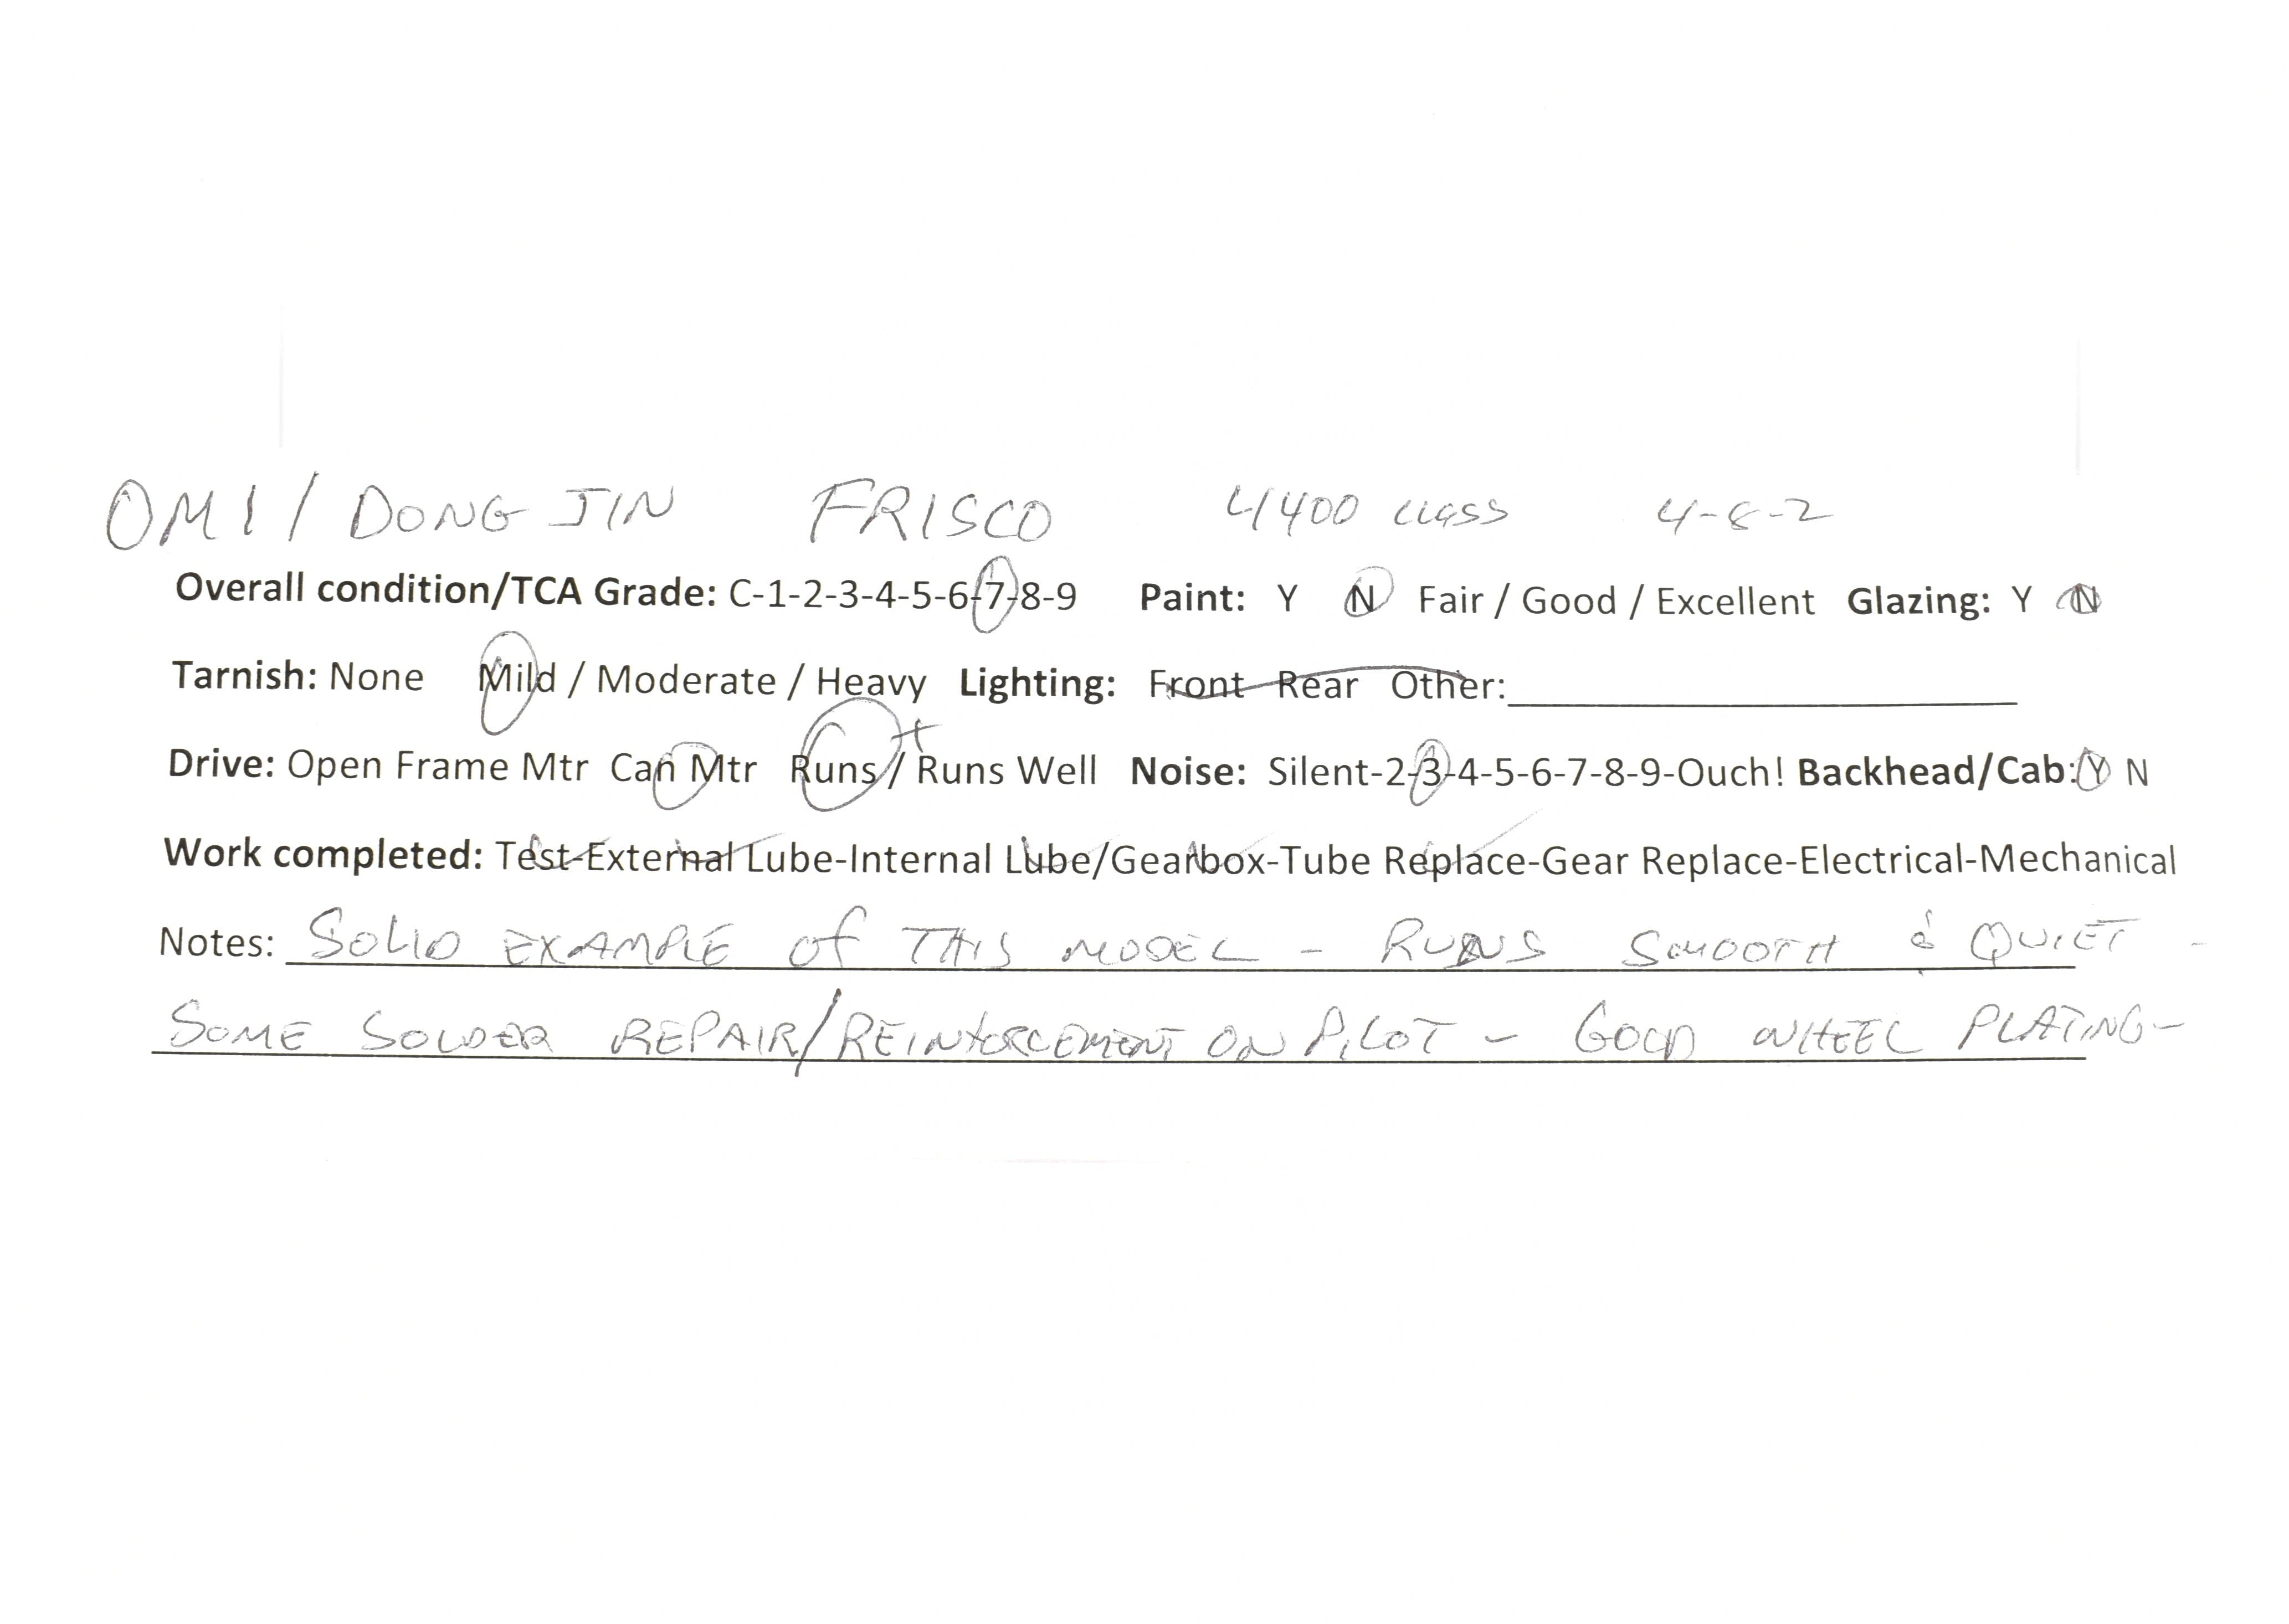 OMI / DONG JIN FRISCO 4400 CLASS 4-8-2
Overall condition/TCA Grade: C-1-2-3-4-5-6-7-8-9 Paint: Y N Fair / Good / Excellent Glazing: Y N
Tarnish: None Mild / Moderate / Heavy Lighting: Front Rear Other:
Drive: Open Frame Mtr Can Mtr Runs/+ Runs Well Noise: Silent-2-3-4-5-6-7-8-9-Ouch! Backhead/Cab: Y N
Work completed: Test-External Lube-Internal Lube/Gearbox-Tube Replace-Gear Replace-Electrical-Mechanical
Notes: SOLID EXAMPLE of THIS MODEL - RUNS SMOOTH & QUIET -
SOME SOLDER REPAIR/REINFORCEMENT ON PILOT - GOOD WHEEL PLATING-